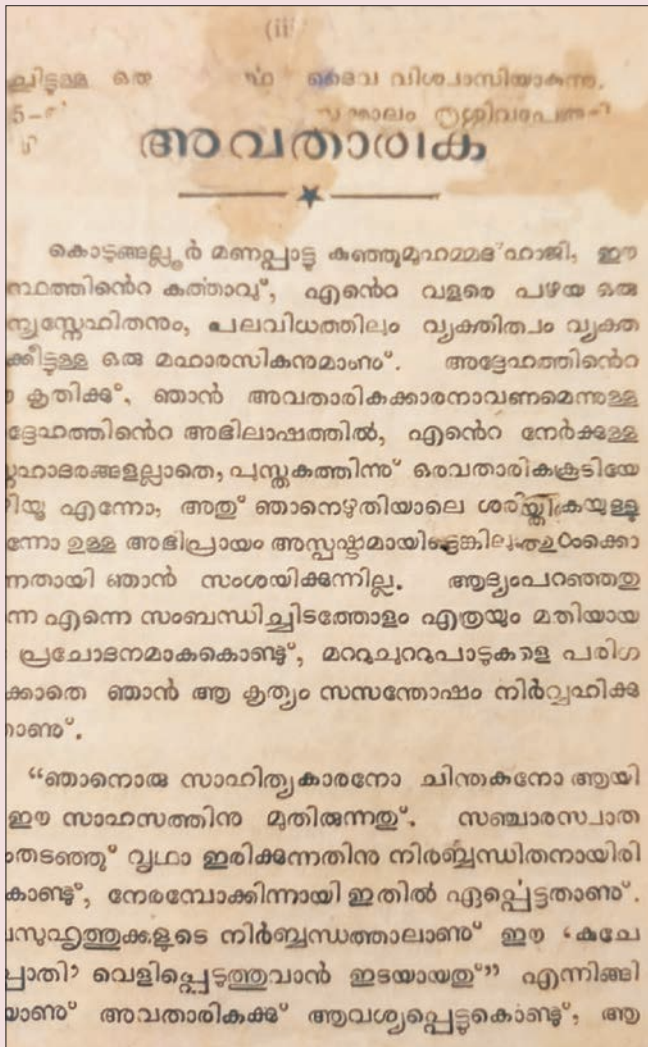 (ii
ച്ചിട്ടുള്ള ഒരു ദൈവ വിശ്വാസിയാകുന്നു.
അവതാരിക
കൊടുങ്ങല്ലൂർ മണപ്പാട്ടു കുഞ്ഞുമുഹമ്മദ് ഹാജി, ഈ
ന്ഥത്തിൻെറ കത്താവു്, എൻെറ വളരെ പഴയ ഒരു
ന്നുസ്നേഹിതനും, പലവിധത്തിലും വ്യക്തിത്വം വ്യക്ത
ക്കീട്ടുള്ള ഒരു മഹാരസികനുമാണു്. അദ്ദേഹത്തിൻെറ
കൃതിക്കു്, ഞാൻ അവതാരികക്കാരനാവണമെന്നുള്ള
ദ്ദേഹത്തിൻെറ അഭിലാഷത്തിൽ, എൻെറ നേർക്കുള്ള
സ്നേഹാദരങ്ങളല്ലാതെ, പുസ്തകത്തിന്നു് ഒരവതാരികകൂടിയേ
റിയൂ എന്നോ, അതു് ഞാനെഴുതിയാലെ ശരിയ്ക്കുകയുള്ളു
ന്നോ ഉള്ള അഭിപ്രായം അസ്പഷ്ടമായിട്ടെങ്കിലും ഉൾക്കൊ
ന്നതായി ഞാൻ സംശയിക്കുന്നില്ല. ആദ്യംപറഞ്ഞതു
ന്ന എന്നെ സംബന്ധിച്ചിടത്തോളം എത്രയും മതിയായ
പ്രചോദനമാകകൊണ്ടു്, മററുചുററുപാടുകളെ പരിഗ
ക്കാതെ ഞാൻ ആ കൃത്യം സസന്തോഷം നിർവ്വഹിക്കു
താണു്.
“ഞാനൊരു സാഹിത്യകാരനോ ചിന്തകനോ ആയി
ഈ സാഹസത്തിനു മുതിരുന്നതു്. സഞ്ചാരസ്വാത
തടഞ്ഞു് വൃഥാ ഇരിക്കുന്നതിനു നിർബ്ബന്ധിതനായിരി
കൊണ്ടു്, നേരമ്പോക്കിന്നായി ഇതിൽ ഏപ്പെട്ടതാണു്.
സുഹൃത്തുക്കളുടെ നിർബ്ബന്ധത്താലാണു് ഈ ‘കുചേ
പ്പൊതി’ വെളിപ്പെടുത്തുവാൻ ഇടയായതു്” എന്നിങ്ങി
യാണു് അവതാരികക്കു് ആവശ്യപ്പെട്ടുകൊണ്ടു്, ആ